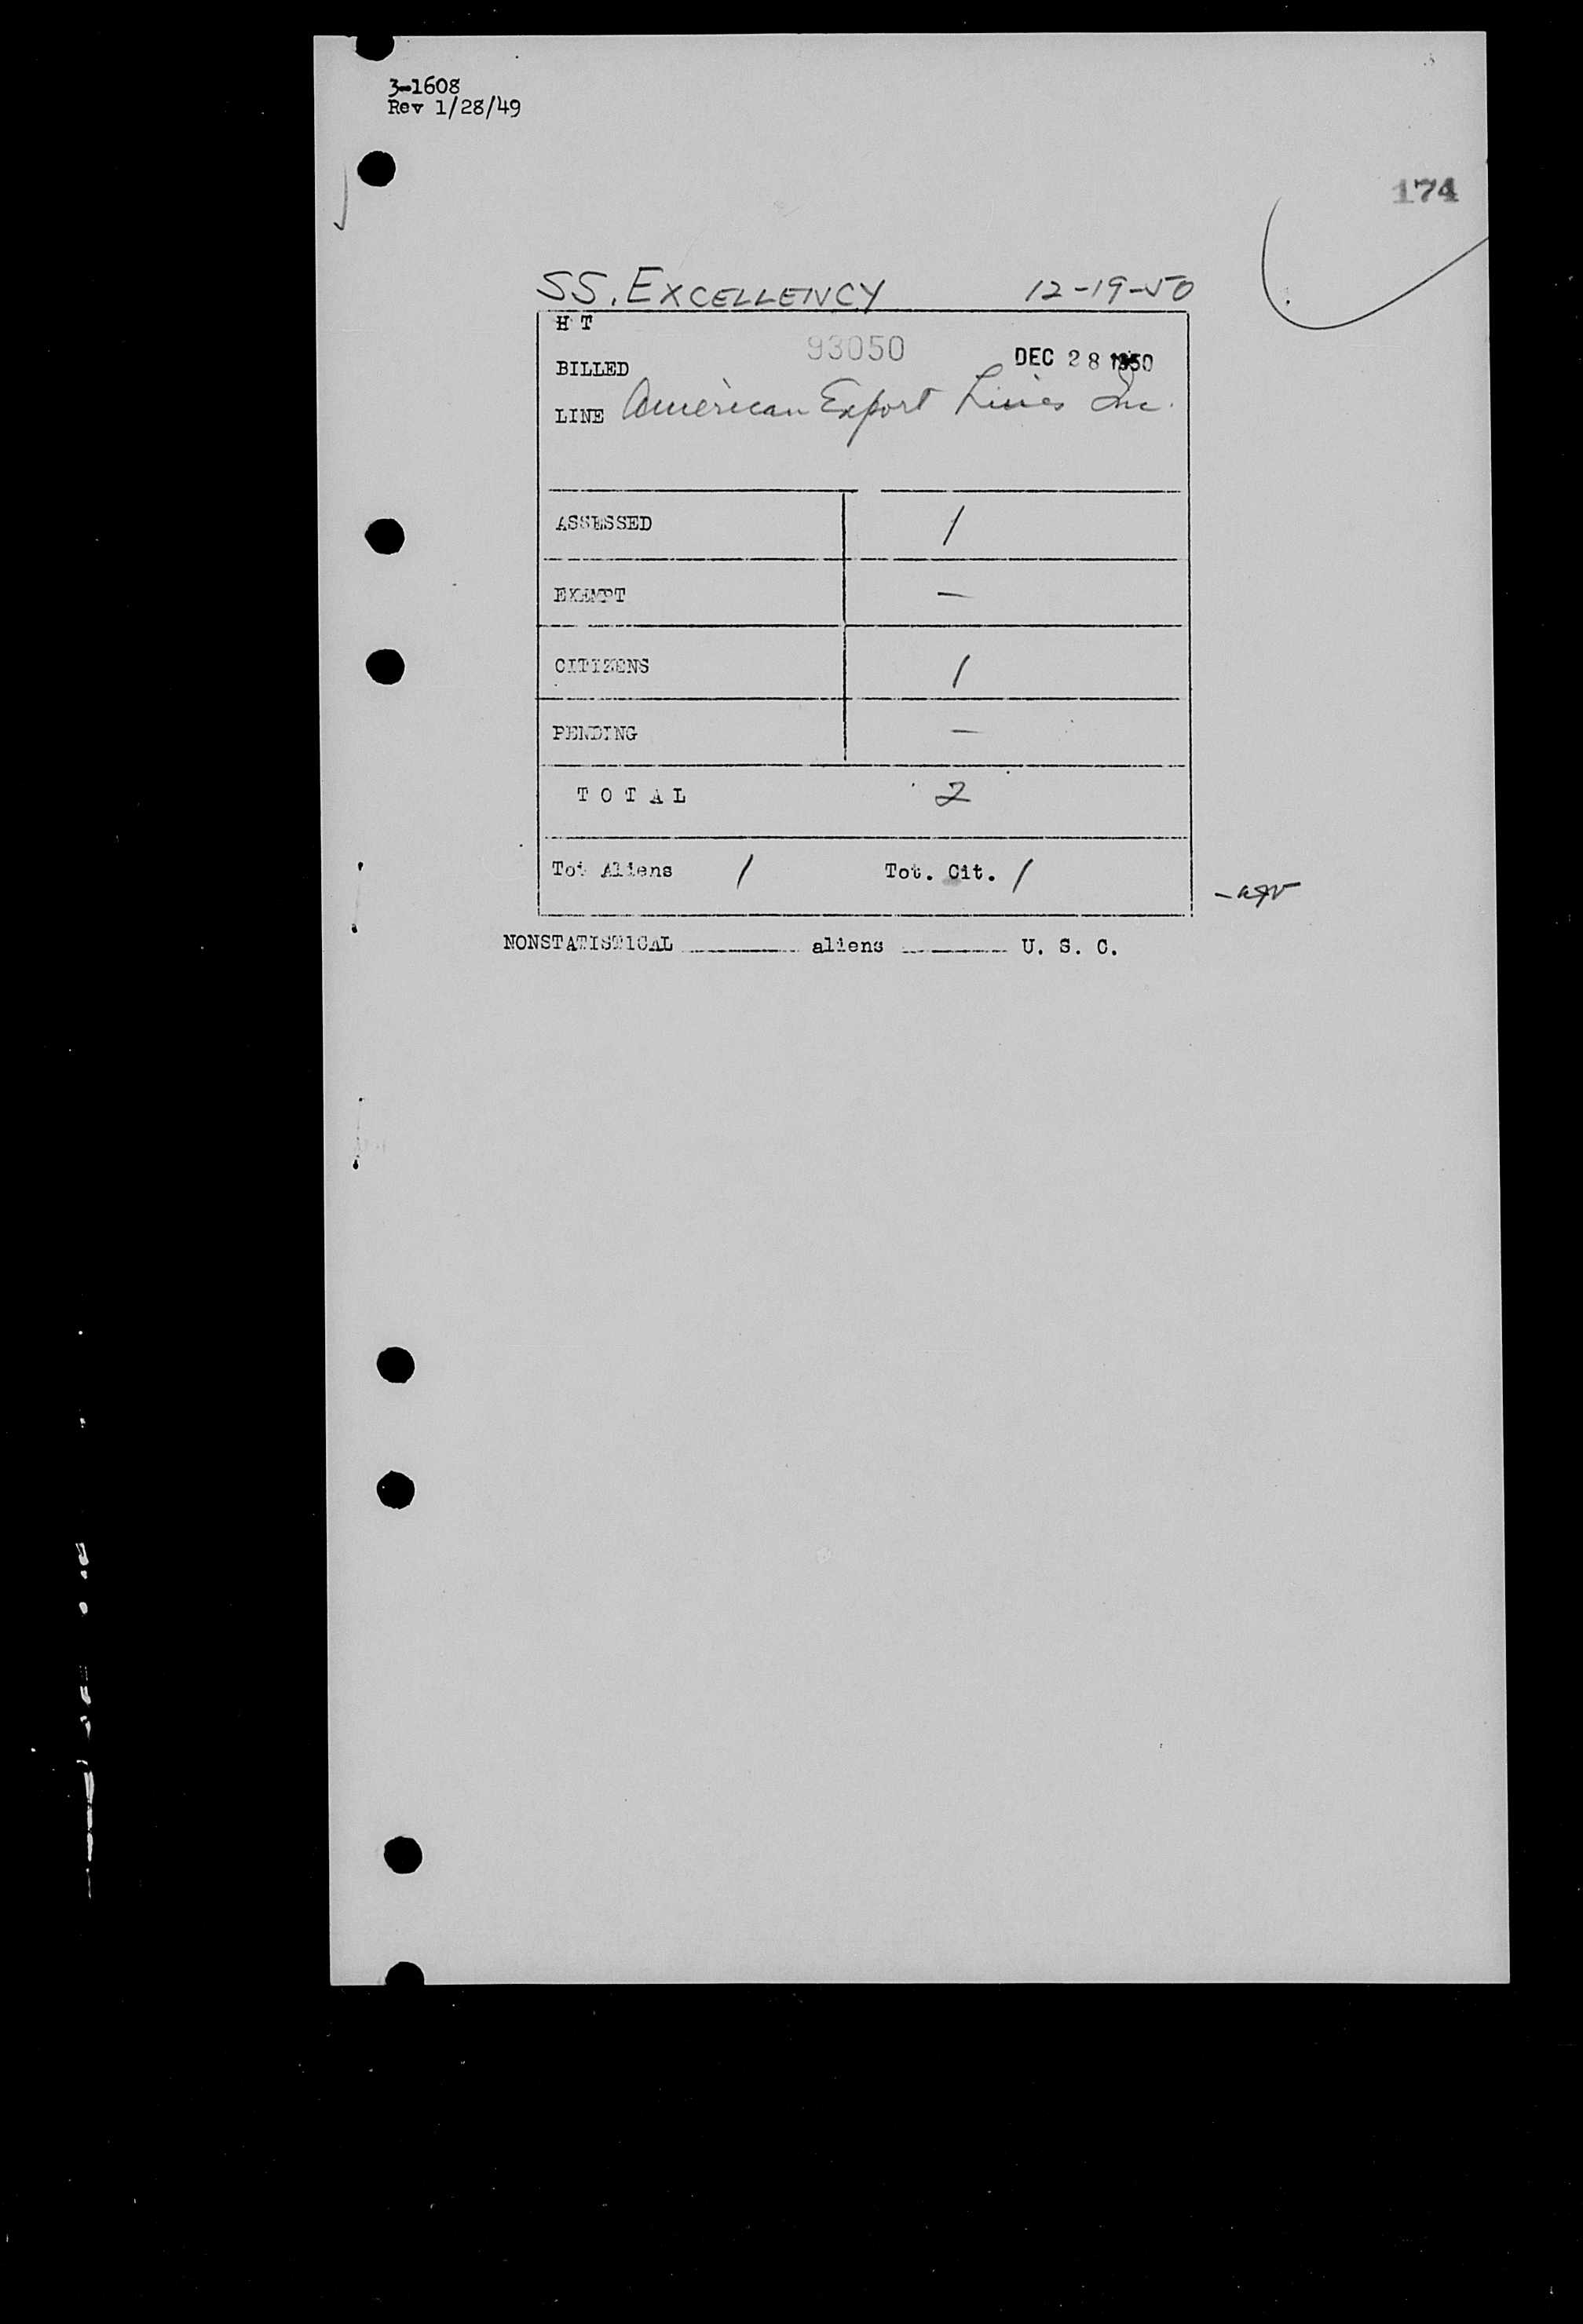 3-1608
Rev 1/28/49
174
SS. EXCELLENCY 12-19-50
H T
93050
BILLED DEC 28 1950
LINE American Export Lines Inc.
ASSESSED 1
EXEMPT —
CITIZENS 1
PENDING —
T O T A L 2
Tot Aliens 1 Tot. Cit. 1
NONSTATISTICAL ______ aliens ______ U. S. C.